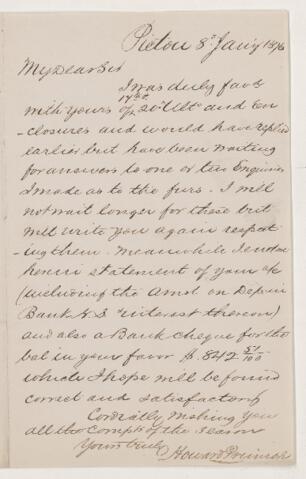 Pictou 8th Jany 1876
My Dear Sir
I was duly favd
with yours of 17th & 20th Ulto and En
-closures and would have replied
earlier but have been waiting
for answers to one or two Enquiries
I made as to the furs. I will
not wait longer for these but
will write you again respect
-ing them. Meanwhile I enclose
herein statement of your a/c
(including the amt on Deposit
Bank N.S. & interest thereon)
and also a Bank cheque for the
bal in your favor $842 51/100
which I hope will be found
correct and satisfactory
Cordially wishing you
all the Compts of the season
Yours truly
Howard Primrose